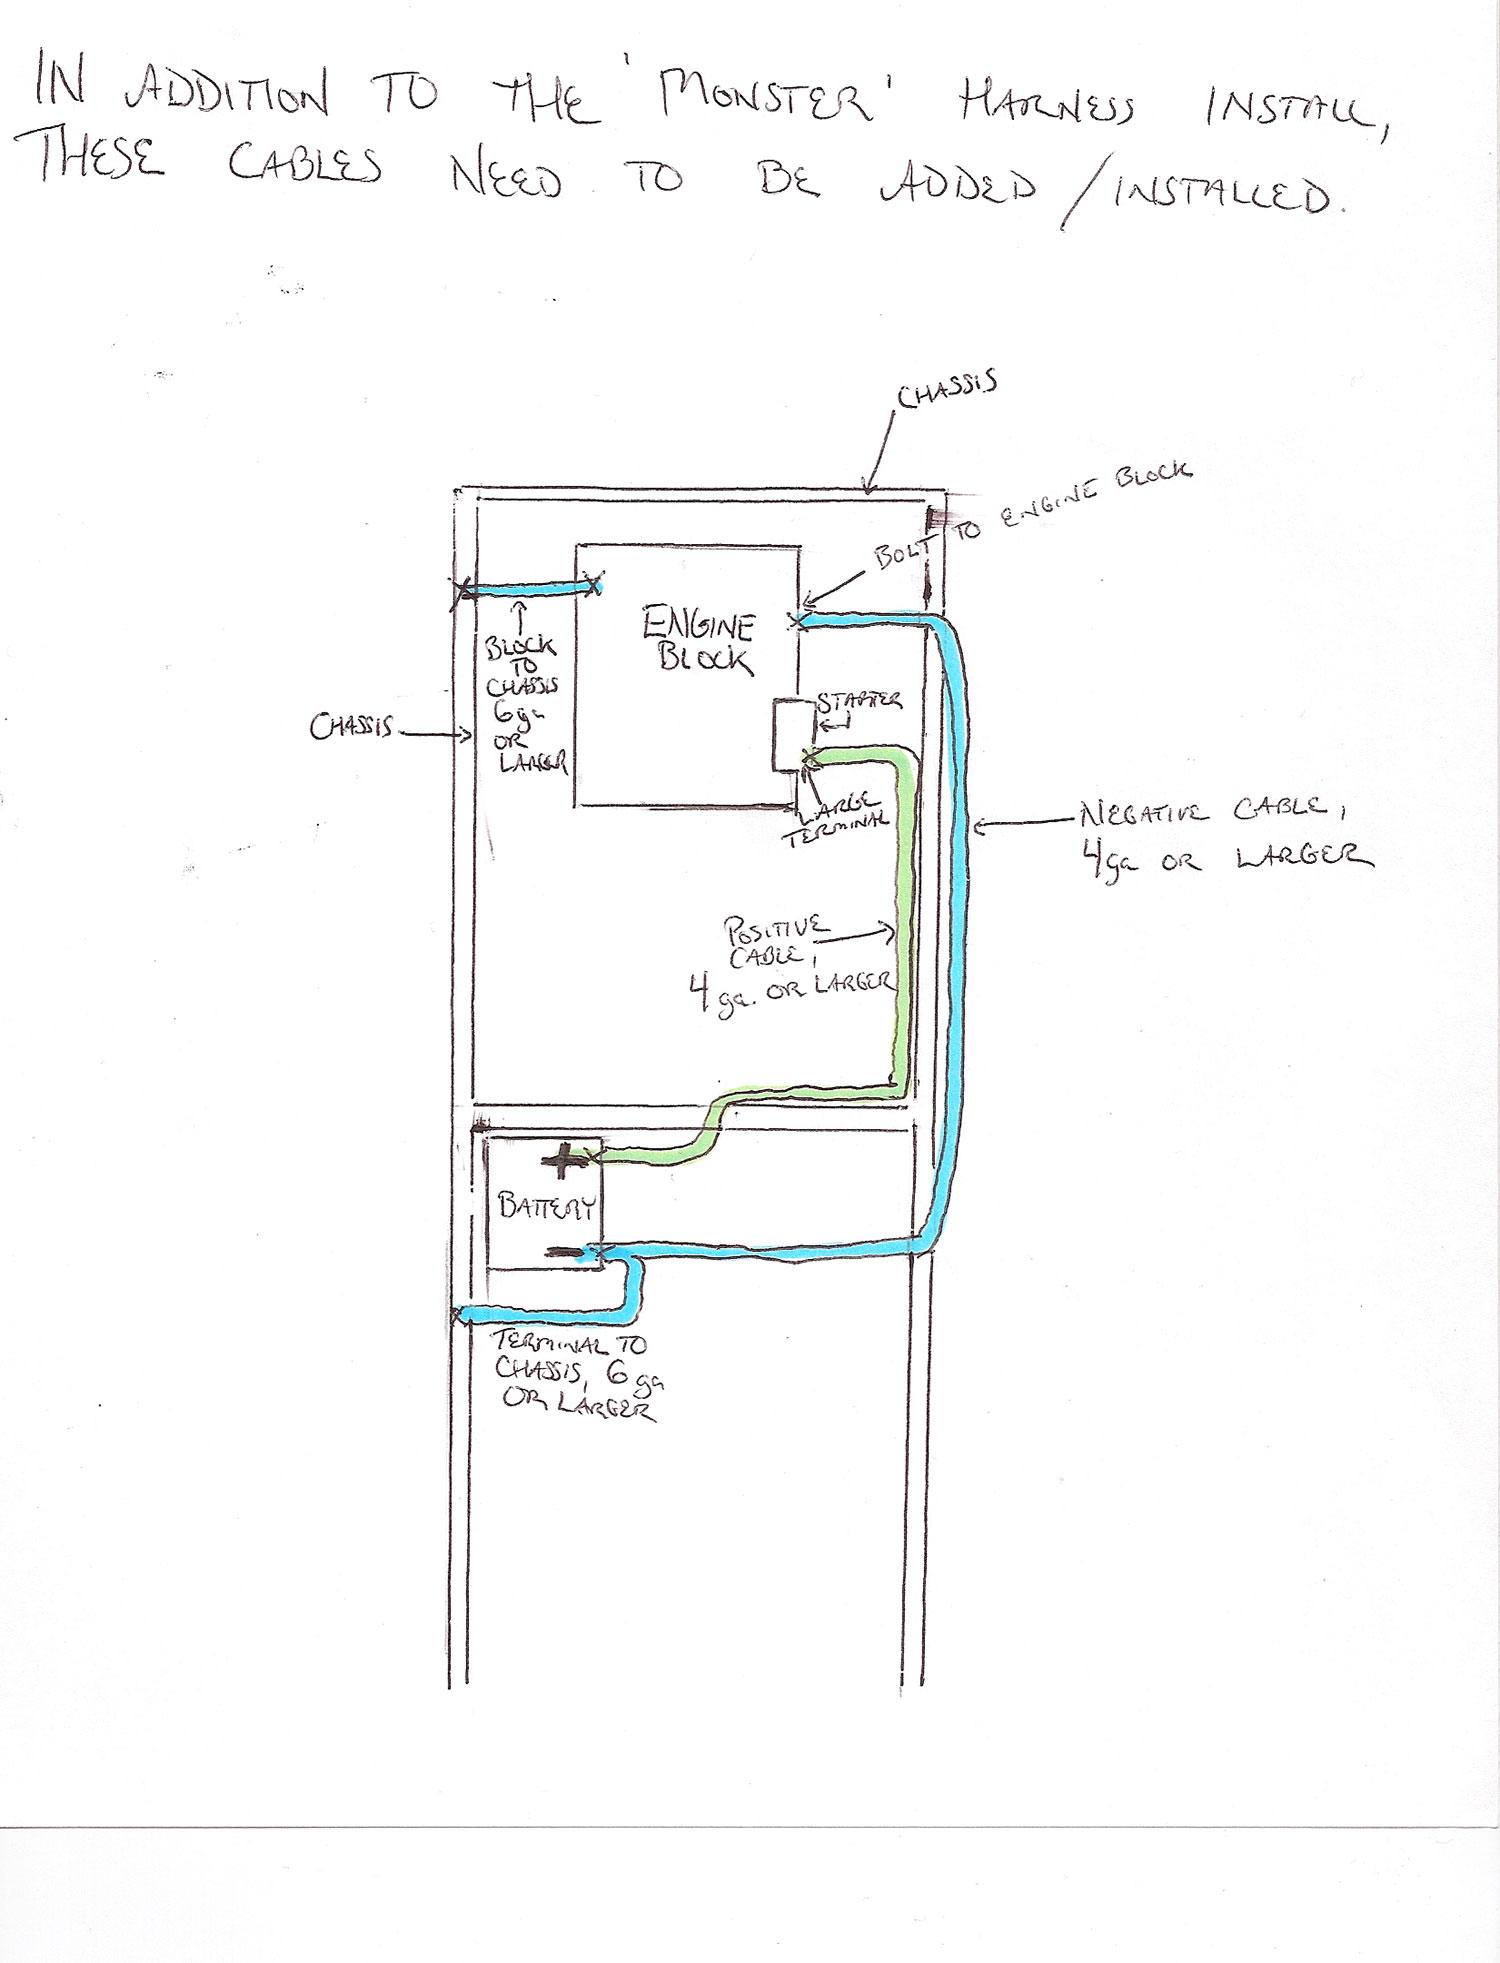 IN ADDITION TO THE 'MONSTER' HARNESS INSTALL,
THESE CABLES NEED TO BE ADDED/INSTALLED.
CHASSIS
BOLT TO ENGINE BLOCK
ENGINE
BLOCK
BLOCK
TO
CHASSIS
6ga
OR
LARGER
CHASSIS
STARTER
LARGE
TERMINAL
NEGATIVE CABLE,
4ga OR LARGER
POSITIVE
CABLE,
4ga. OR LARGER
+
BATTERY
-
TERMINAL TO
CHASSIS, 6ga
OR LARGER